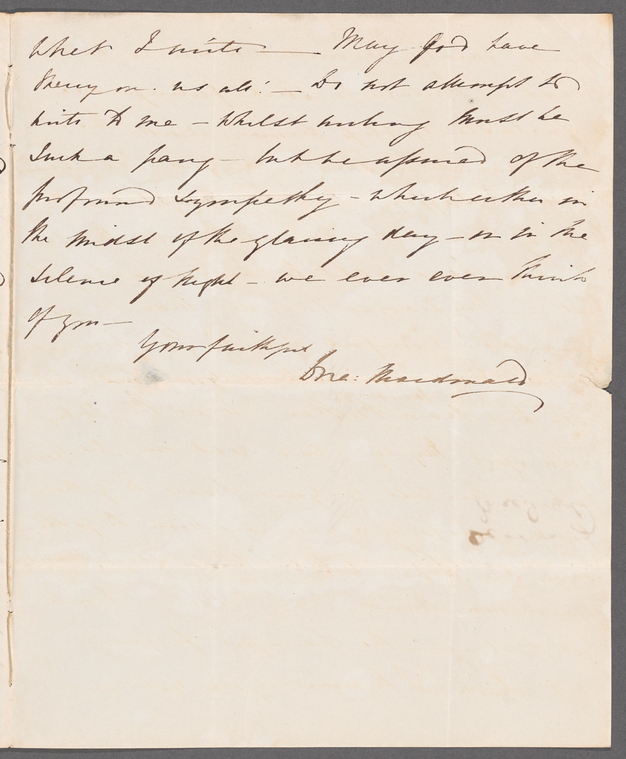 what I write — May God have
Mercy on us all! — Do not attempt to
write to me — whilst writing must be
such a pang — but be assured of the
profound sympathy — whether in
the midst of the glaring day — or in the
silence of night — we ever ever think
of you —
Your faithful
Macdonald